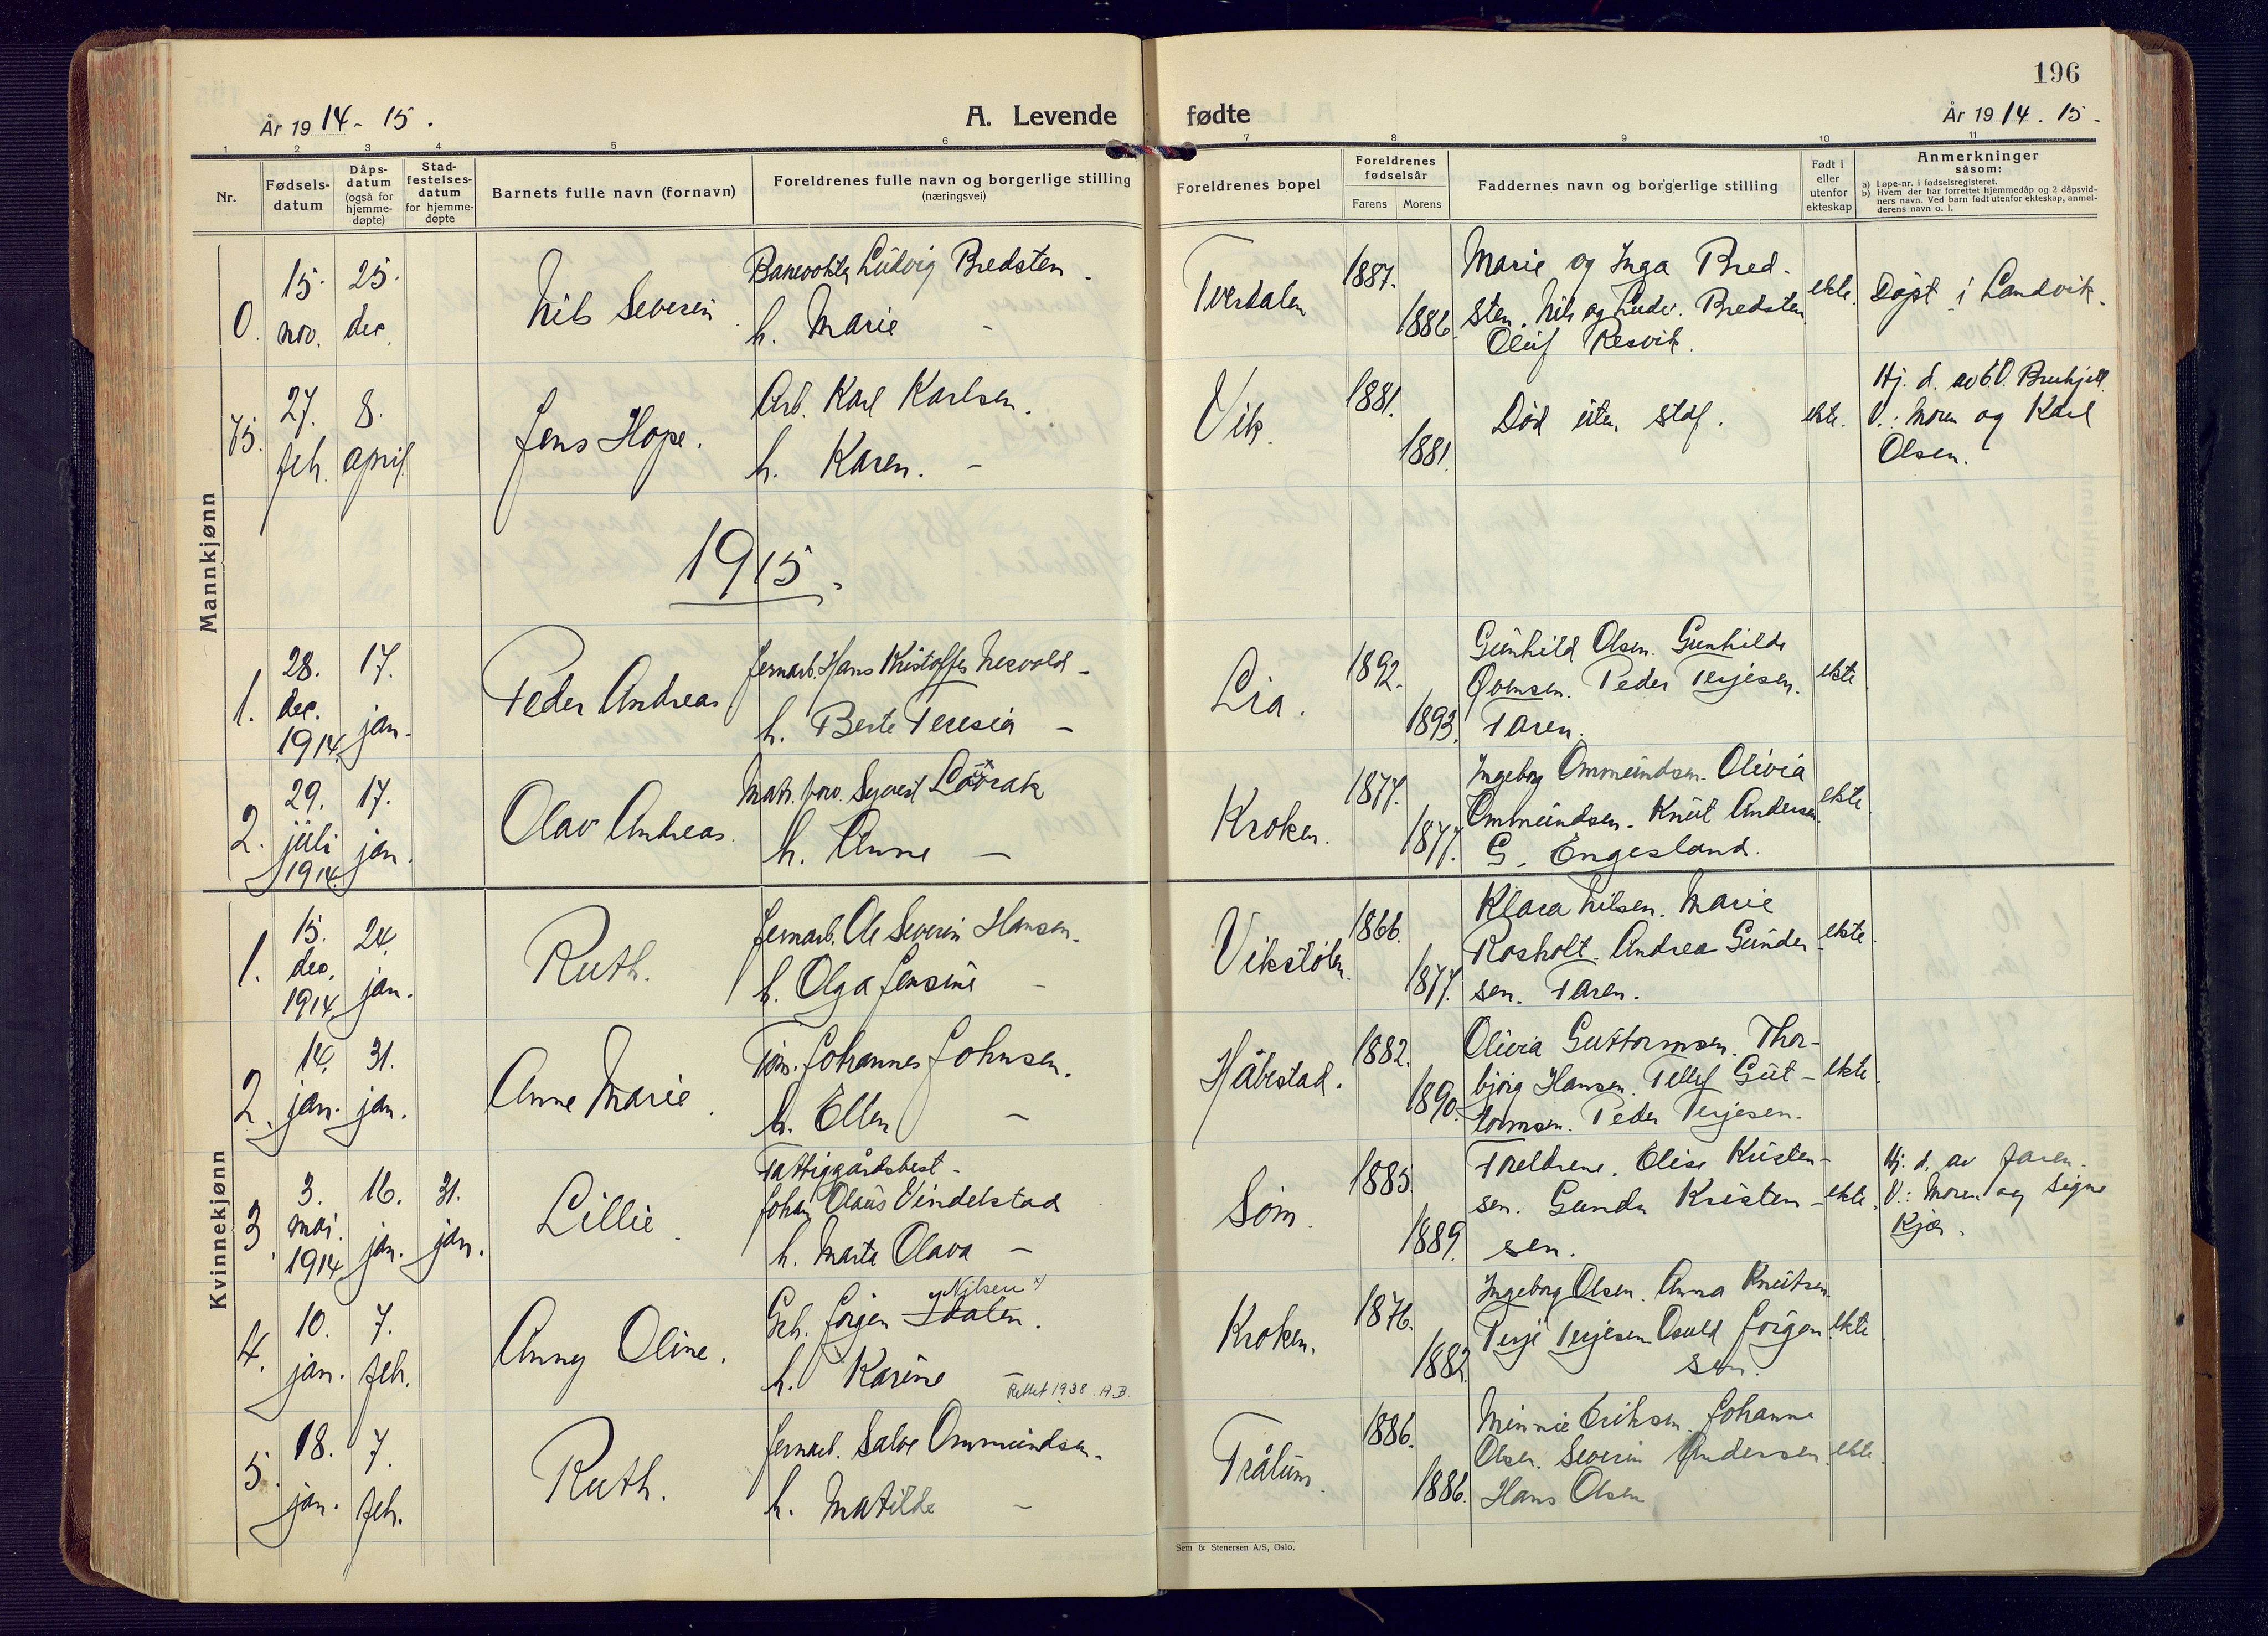 196
År 1914 - 15.
A. Levende fødte
År 1914. 15.
1 2 3 4 5 6 7 8 9 10 11
Nr.
Fødsels-
datum
Dåps-
datum
(også for
hjemme-
døpte)
Stad-
festelses-
datum
for hjemme-
døpte
Barnets fulle navn (fornavn)
Foreldrenes fulle navn og borgerlige stilling
(næringsvei)
Foreldrenes bopel
Foreldrenes
fødselsår
Farens Morens
Faddernes navn og borgerlige stilling
Født i
eller
utenfor
ekteskap
Anmerkninger
såsom:
a) Løpe-nr. i fødselsregisteret.
b) Hvem der har forrettet hjemmedåp og 2 dåpsvid-
ners navn. Ved barn født utenfor ekteskap, anmel-
derens navn o. l.
Mannkjønn
0.
15.
nov.
25.
dec.
Nils Severin
Ludvig Bredsten.
h. Marie -
Tverdalen
1887.
1886.
Marie og Inga Bred-
sten. Nils og Ludv. Bredsten
Oluf Resvik.
ekte.
Døpt i Landvik.
15.
27.
feb.
8.
april.
Jens Hope.
Arb. Karl Karlsen.
h. Karen. -
Vik.
1881.
1881.
Død uten stdf.
ekte.
Hj. d. av
V.: Moren og Karl
Olsen.
1915.
1.
28.
dec.
1914.
17.
jan.
Peder Andreas
Jernarb. Hans Kristoffer Nesvold -
h. Berte Teresia -
Lia.
1892.
1893.
Gunhild Olsen. Gunhilde
Ovensen. Peder Terjesen.
Faren.
ekte
2.
29.
juli
1914.
17.
jan.
Olav Andreas.
h. Anne -
Kroken.
1877.
1877.
Ingeborg Ommundsen. Olivia
Ommundsen. Knut Andersen.
G. Engesland.
ekte
Kvinnekjønn
1.
15.
dec.
1914
24.
jan.
Ruth.
Jernarb. Ole Severin Hansen.
h. Olga Jensine -
Vikstølen.
1866.
1877.
Klara Nilsen. Marie
Rosholt. Andrea Gunder-
sen. Faren.
ekte.
2.
14.
jan.
31.
jan.
Anne Marie.
Tøm. Johannes Johnsen.
h. Ellen -
Håbestad.
1882.
1890.
Olivia Guttormsen. Thor-
bjørg Hansen. Tellef Gut-
tormsen. Peder Terjesen.
ekte.
3.
3.
mai.
1914
16.
jan.
31.
jan.
Lillie.
Fattiggårdsbest.
Johan Olaus Vindelstad
h. Marta Olava -
Søm.
1885.
1889.
Foreldrene. Elise Kristen-
sen. Gunda Kristen-
sen.
ekte.
Hj. d. av faren.
V.: Moren og Signe
Kjær.
4.
10.
jan.
7.
feb.
Anny Oline.
Nilsen x)
Grb. Jørgen Sdalen.
h. Karine -
Rettet 1938. A.B.
Kroken.
1876.
1882.
Ingeborg Olsen. Anna Knutsen.
Terje Terjesen. Osuld Jørgen-
sen.
ekte
5.
18.
jan.
7.
feb.
Ruth.
Jernarb. Salve Ommundsen.
h. Matilde -
Trålum.
1886.
1886.
Minnie Eriksen. Johanne
Olsen. Severin Andersen.
Hans Olsen
ekte.
Sem & Stenersen A/S, Oslo.